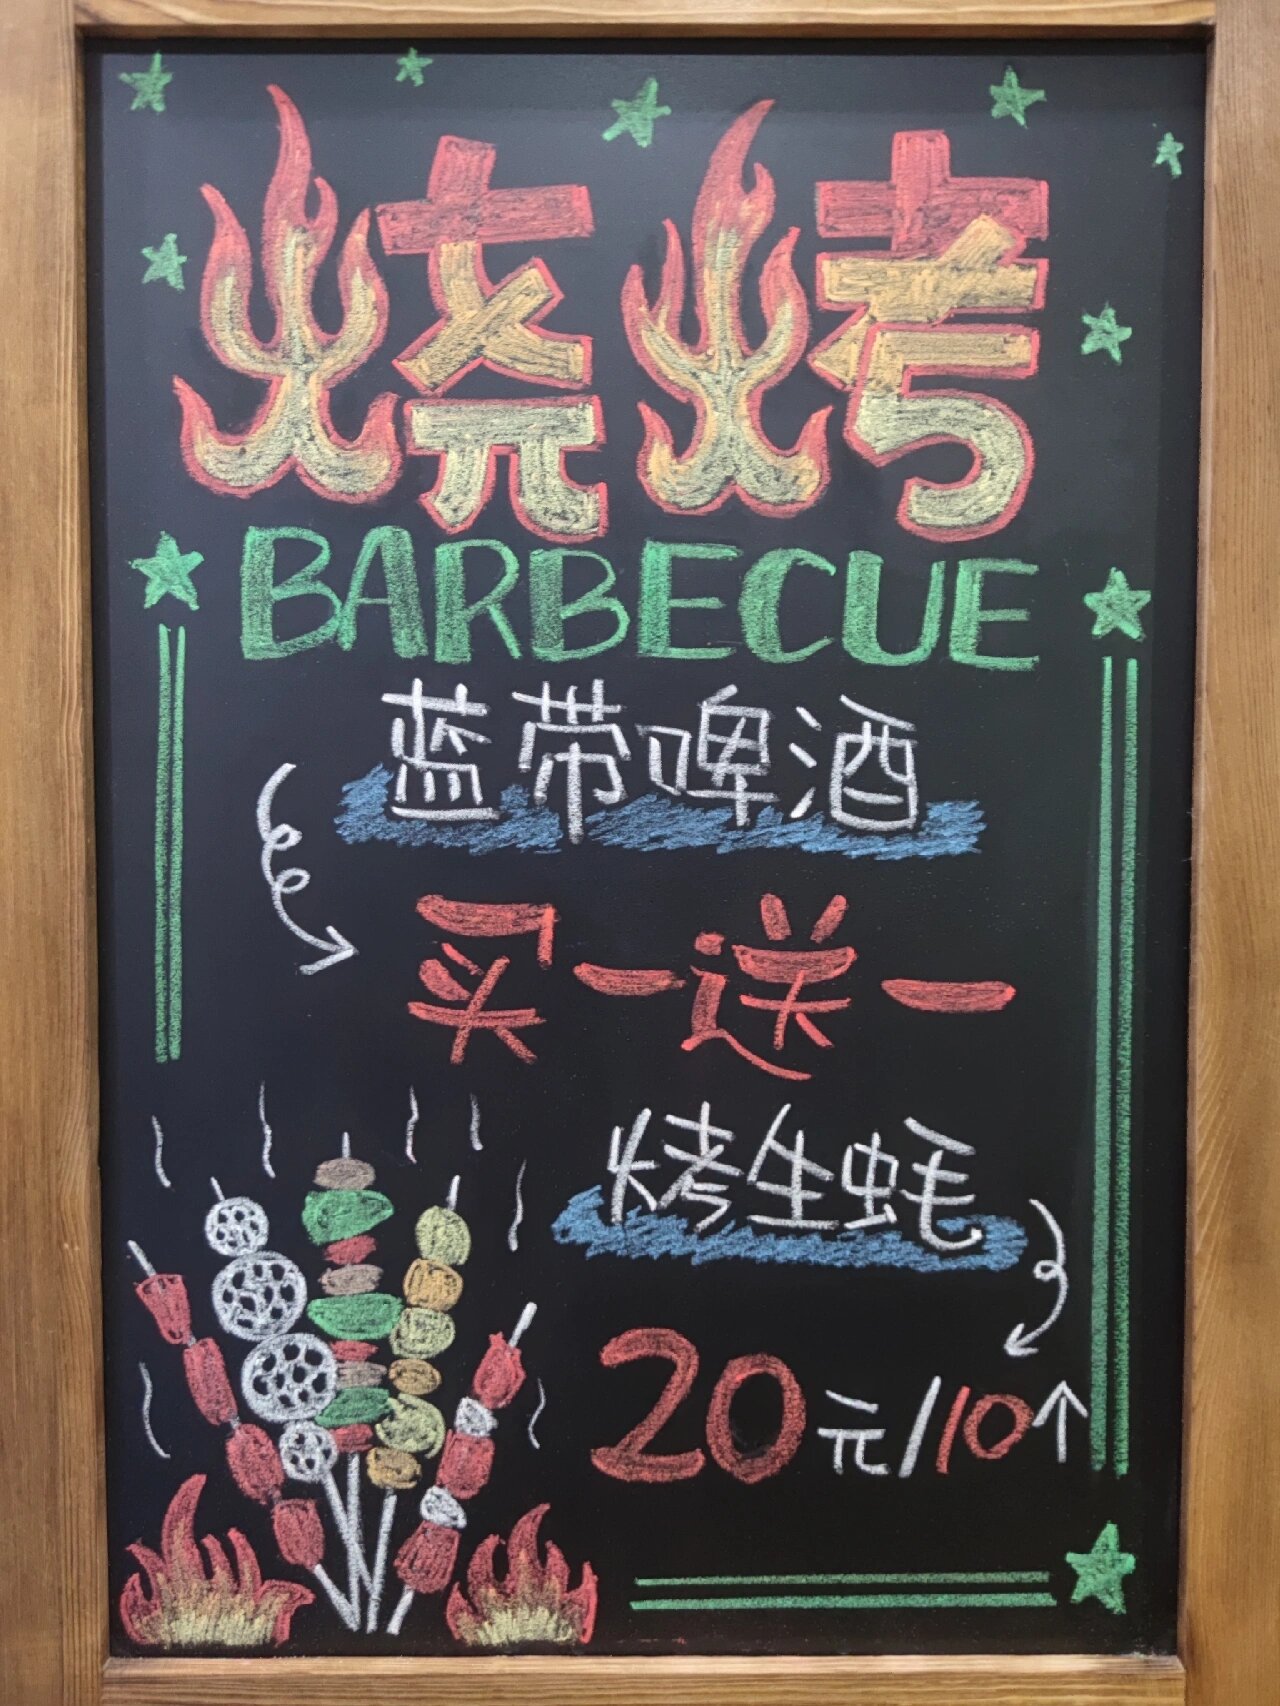 烧烤
BARBECUE
蓝带啤酒
买一送一
烤生蚝
20元/10个